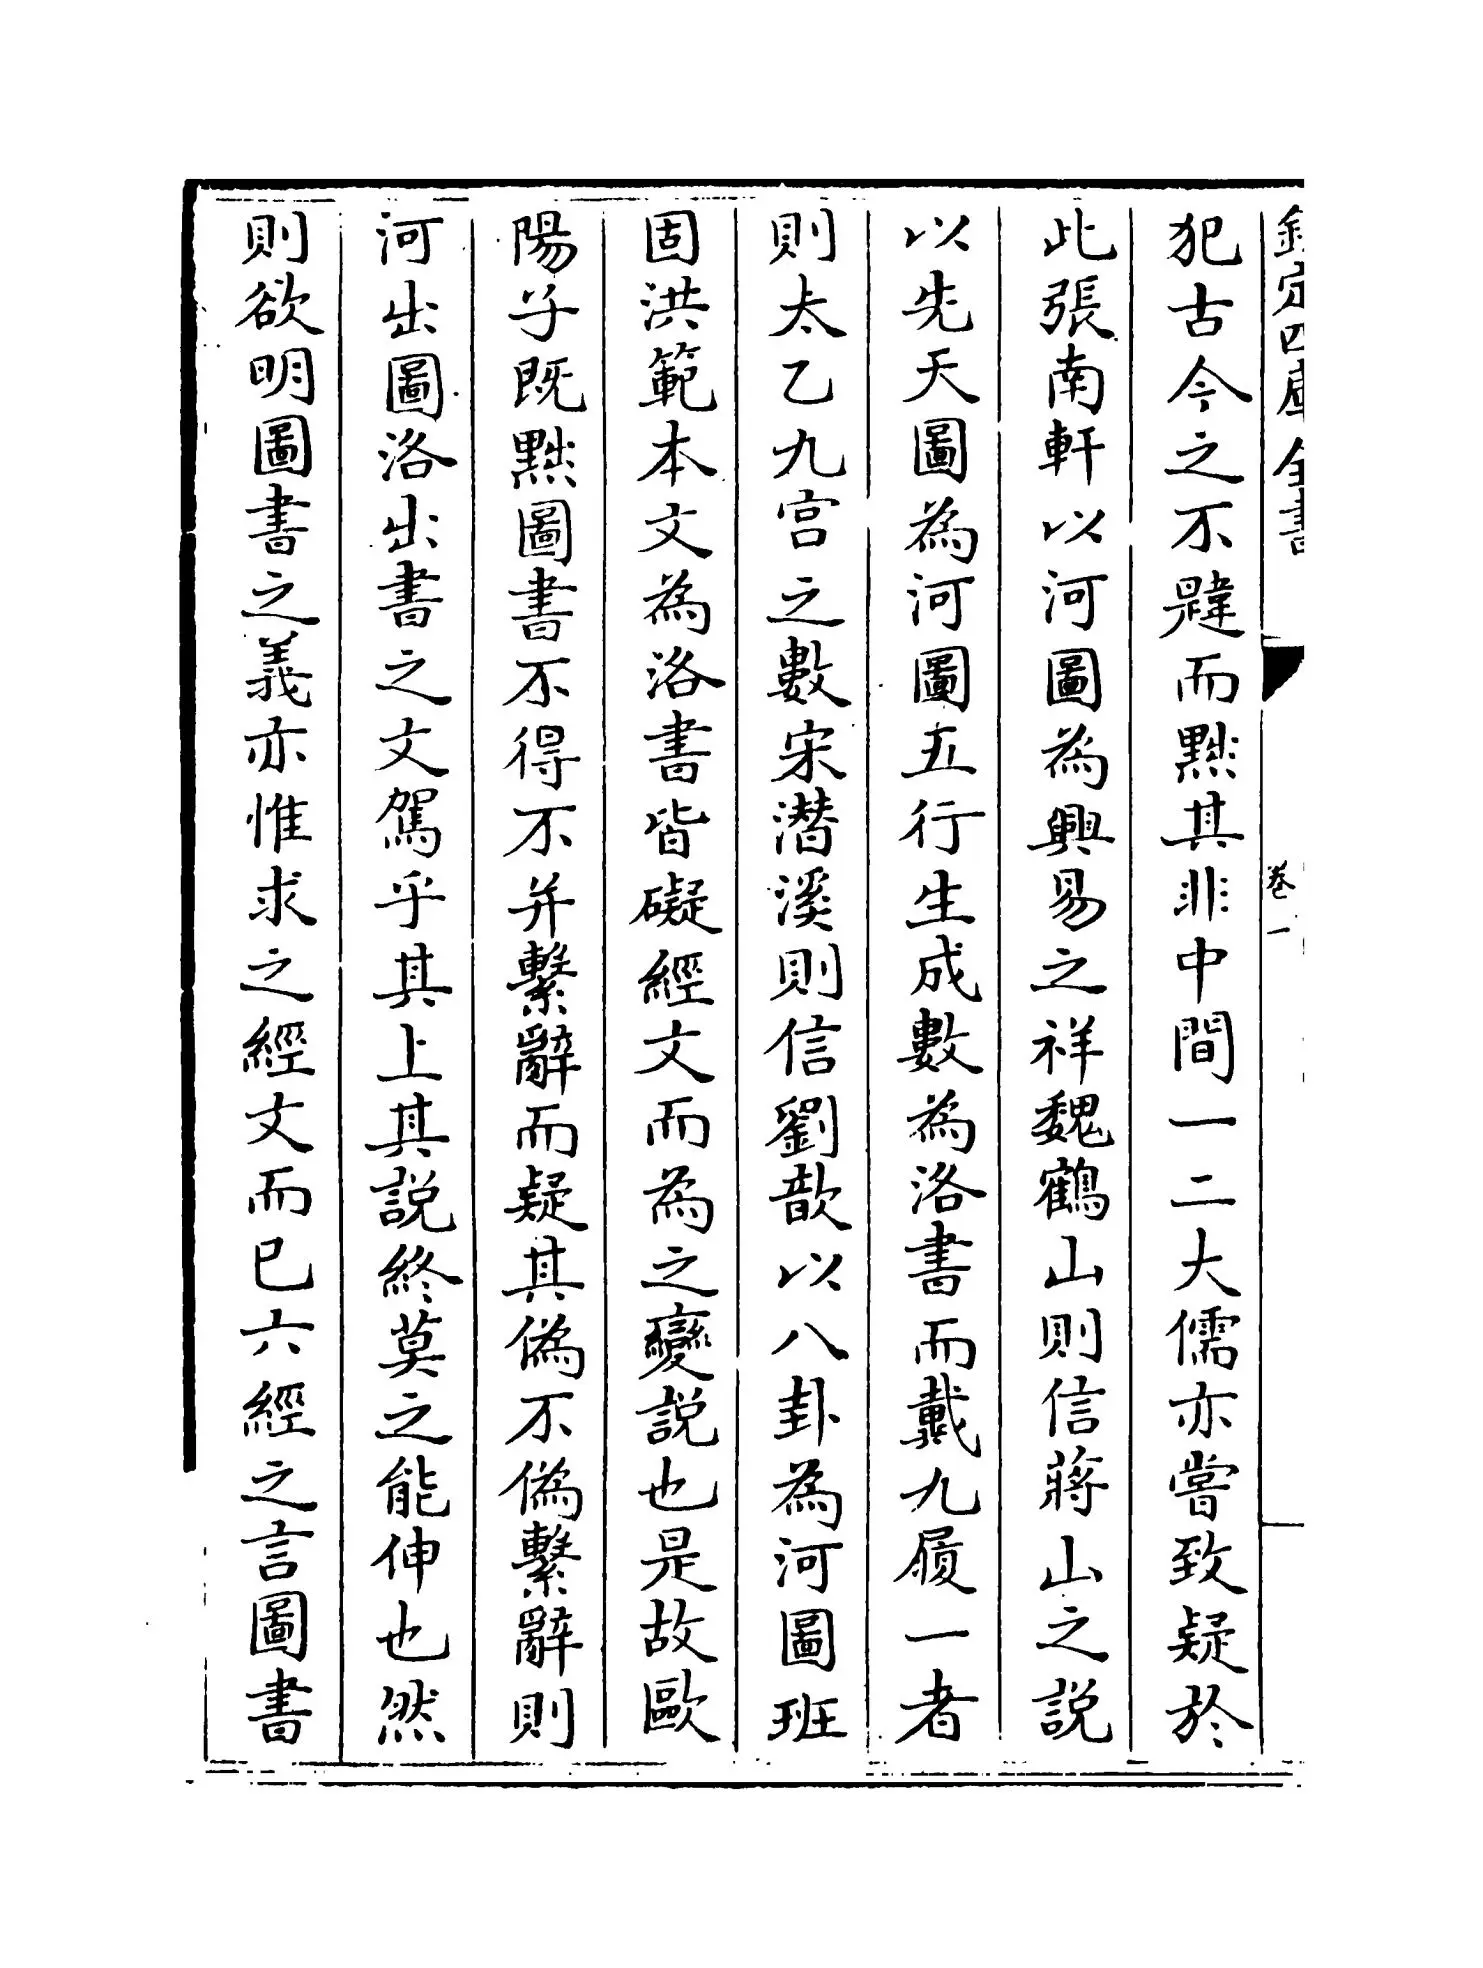 欽定四庫全書
卷一
犯古今之不韙而黜其非中間一二大儒亦嘗致疑於
此張南軒以河圖為興易之祥魏鶴山則信蔣山之説
以先天圖為河圖五行生成數為洛書而戴九履一者
則太乙九宫之數宋潛溪則信劉歆以八卦為河圖班
固洪範本文為洛書皆礙經文而為之變説也是故歐
陽子既黜圖書不得不并繫辭而疑其偽不偽繫辭則
河出圖洛出書之文駕乎其上其説終莫之能伸也然
則欲明圖書之義亦惟求之經文而已六經之言圖書